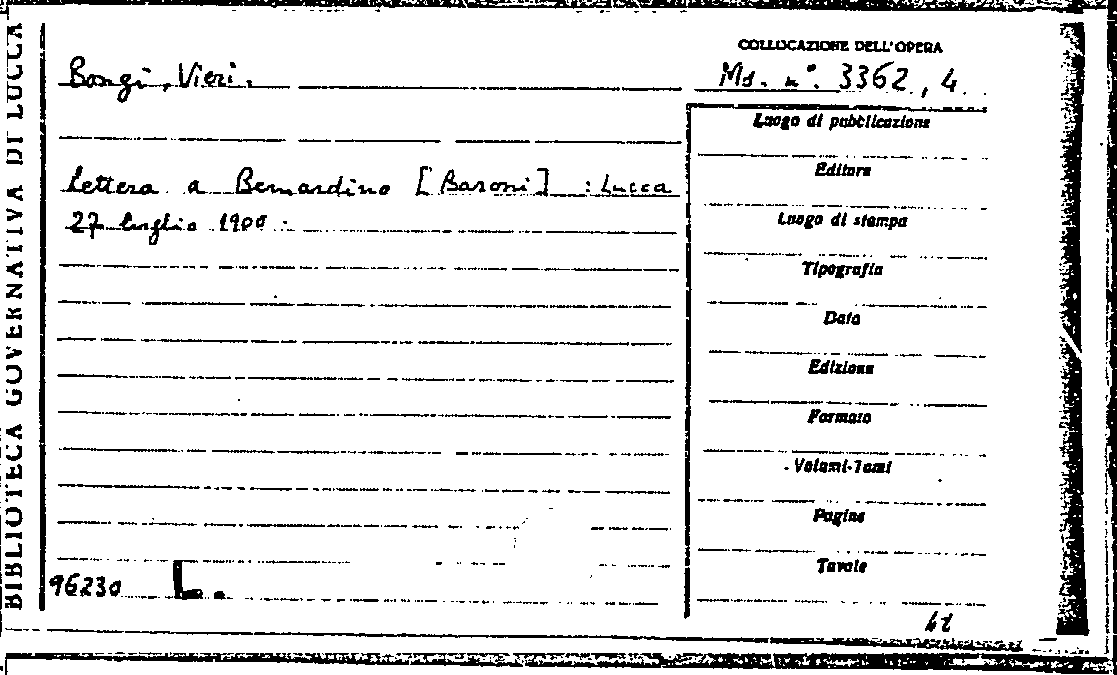 BIBLIOTECA GOVERNATIVA DI LUCCA
COLLOCAZIONE DELL'OPERA
Bongi, Vieri.
Ms. n°. 3362, 4
Lettera a Bernardino [Baroni] : Lucca
27 luglio 1900.
Luogo di pubblicazione
Editore
Luogo di stampa
Tipografia
Data
Edizione
Formato
Volumi-Tomi
Pagine
Tavole
96230